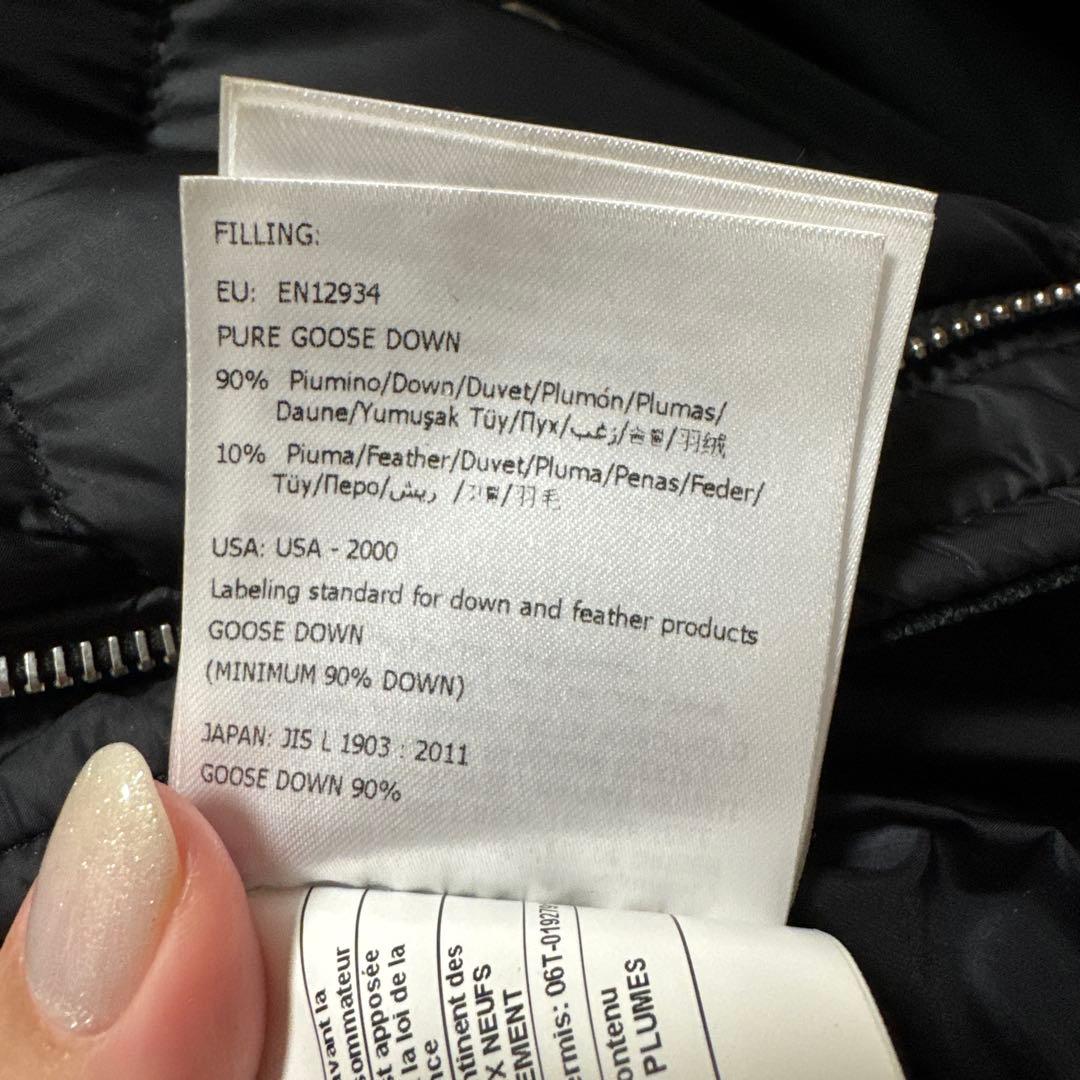 FILLING:
EU: EN12934
PURE GOOSE DOWN
90% Piumino/Down/Duvet/Plumón/Plumas/
Daune/Yumuşak Tüy/Пух/زغب/羽绒
10% Piuma/Feather/Duvet/Pluma/Penas/Feder/
Tüy/Перо/ريش/羽毛
USA: USA - 2000
Labeling standard for down and feather products
GOOSE DOWN
(MINIMUM 90% DOWN)
JAPAN: JIS L 1903 : 2011
GOOSE DOWN 90%
avant la
sommateur
st apposée
la loi de la
nce
ntinent des
X NEUFS
EMENT
ermis: 06T-01927
ontenu
PLUMES